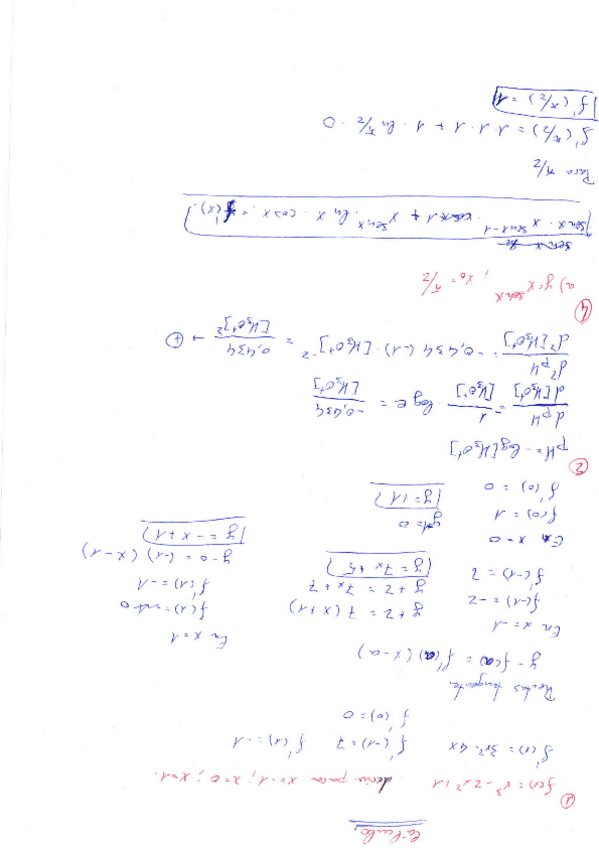 Cálculo.
① f(x) = x³ - 2x² + 1 deriv para x=-1; x=0; x=1.
f'(x) = 3x² - 4x f'(-1) = 7 f'(1) = -1
f'(0) = 0
Rectas tangente
y - f(a) = f'(a) (x-a)
En x = -1
f(-1) = -2
f'(-1) = 7
y + 2 = 7 (x+1)
y + 2 = 7x + 7
y = 7x + 5
En x = 1
f(1) = 0
f'(1) = -1
y - 0 = (-1) (x-1)
y = -x + 1
En x = 0
f(0) = 1
f'(0) = 0
y = 1
② pH = -log [H₃O⁺]
d pH / d[H₃O⁺] = 1 / [H₃O⁺] · log e = -0,434 / [H₃O⁺]
d² pH / d²[H₃O⁺] = -0,434 (-1) · [H₃O⁺]⁻² = 0,434 / [H₃O⁺]² → ⊕
④
a) y = x^sen x ; x₀ = π/2
sen x · x^(sen x - 1) · 1 + x^(sen x) · ln x · cos x = f'(x).
Para π/2
f'(π/2) = 1 · 1 · 1 + 1 · ln π/2 · 0
f'(π/2) = 1